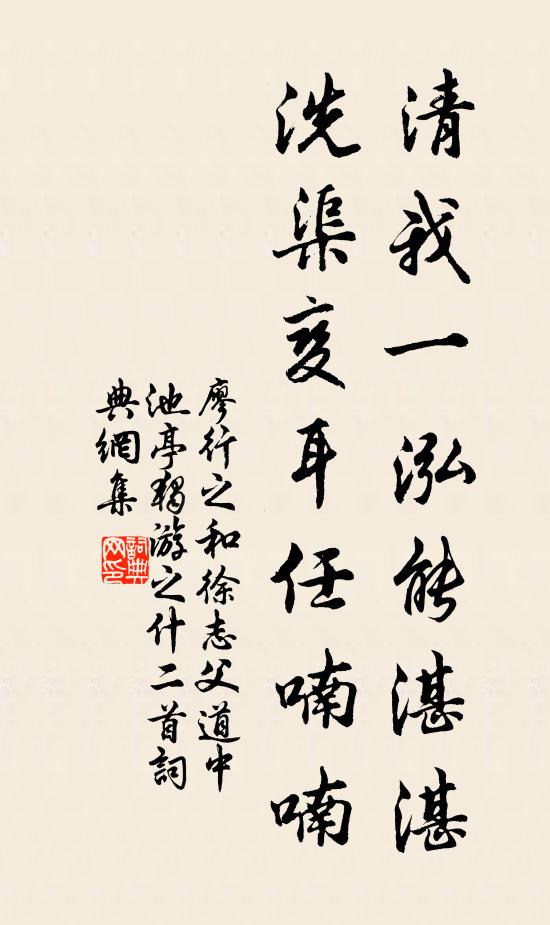 清我一泓能湛湛
洗渠雙耳任喃喃
廖行之和徐志父道中
池亭獨游之什二首詞
典網集
詞典
网印